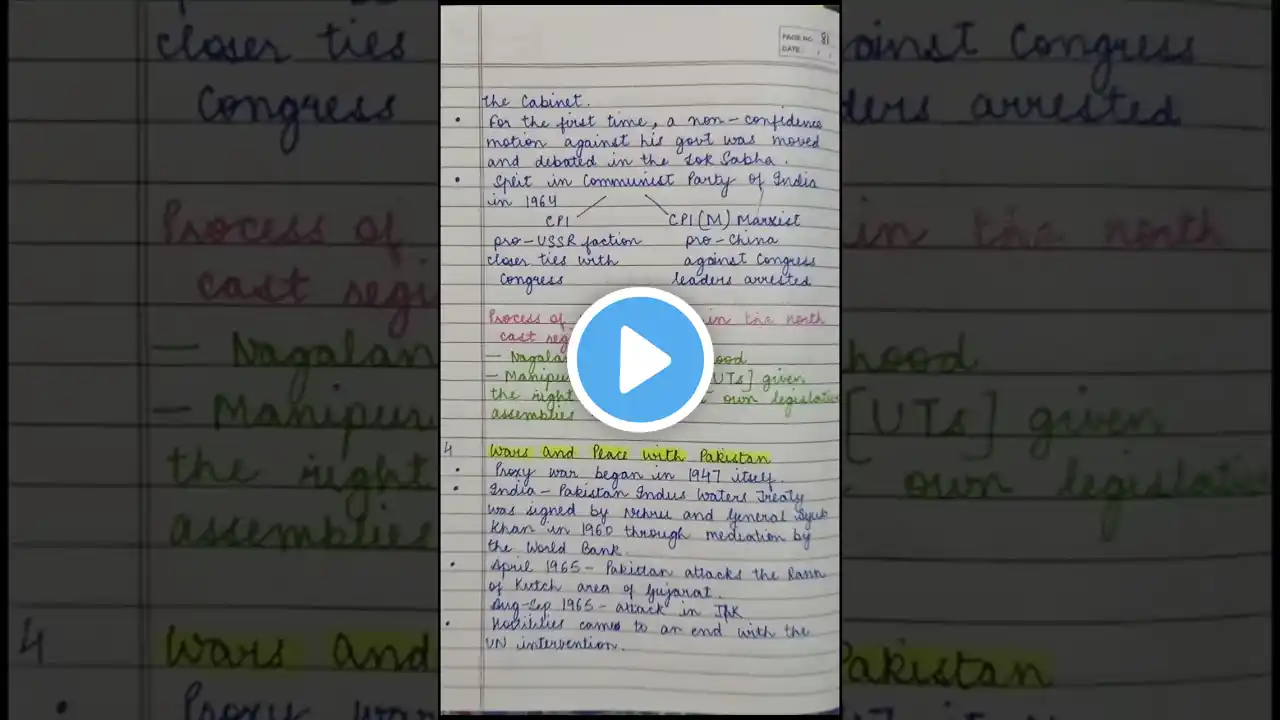 PAGE NO. 81
DATE:
the Cabinet.
• For the first time, a non-confidence
motion against his govt was moved
and debated in the Lok Sabha.
• Split in Communist Party of India
in 1964
CPI CPI(M) Marxist
pro-USSR faction pro-China
closer ties with against Congress
Congress leaders arrested
Process of in the north
east
— Nagaland
— Manipur [UTs] given
the right own legislative
assemblies
4 Wars and Peace with Pakistan
• Proxy war began in 1947 itself.
• India-Pakistan Indus Waters Treaty
was signed by Nehru and General Ayub
Khan in 1960 through mediation by
the World Bank.
• April 1965 - Pakistan attacks the Rann
of Kutch area of Gujarat.
Aug-Sep 1965 - attack in J&K
• Hostilities came to an end with the
UN intervention.